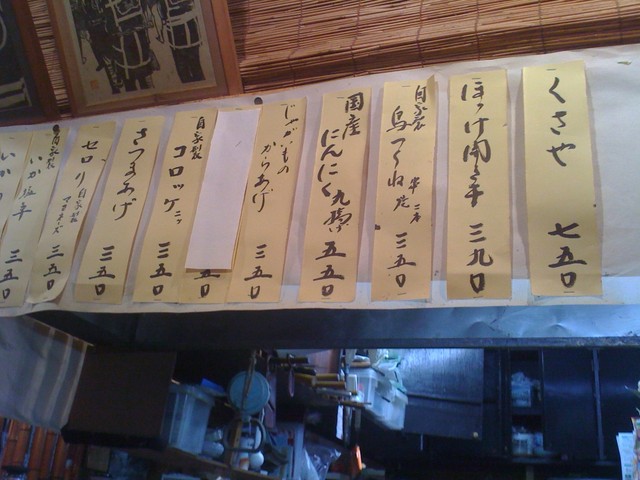 くさや 七五〇
ほっけ開き 三九〇
自家製 鳥つくね 三五〇
国産 にんにく丸揚げ 五五〇
じゃがいもの からあげ 三五〇
五〇
自家製 コロッケ二ッ 三五〇
さつまあげ 三五〇
セロリ 自家製マヨネーズ 三五〇
自家製 いか塩辛 三五〇
いか 三五〇